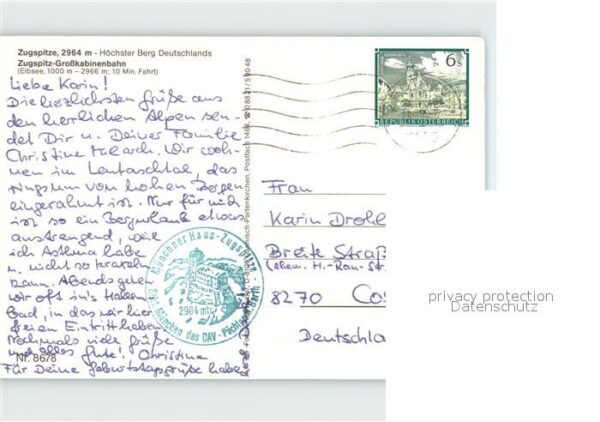 Zugspitze, 2964 m - Höchster Berg Deutschlands
Zugspitz-Großkabinenbahn
(Eibsee, 1000 m - 2966 m; 10 Min. Fahrt)
Liebe Karin!
Die herzlichsten Grüße aus
den herrlichen Alpen sen-
det Dir u. Deiner Familie
Christine Wir woh-
nen im Leutaschtal, das
ringsum von hohen Bergen
eingerahmt ist. Nur für mich
ist so ein Bergurlaub etwas
anstrengend, weil
ich Asthma habe
u. nicht so kraxeln
kann. Abends gehen
wir oft in's Hallen
Bad, in das wir hier
freien Eintritt haben.
Nochmals viele Grüße
und alles Gute! Christine
Für Deine Geburtstagsgrüße habe
Nr. 8678
Münchner Haus - Zugspitze
2964 mtr.
München des DAV - Pächter
6 S
REPUBLIK ÖSTERREICH
Frau
Karin Drohl
Breite Straß
(ehem. H.-Rau-St
8270 Cos
Deutschla
privacy protection
Datenschutz